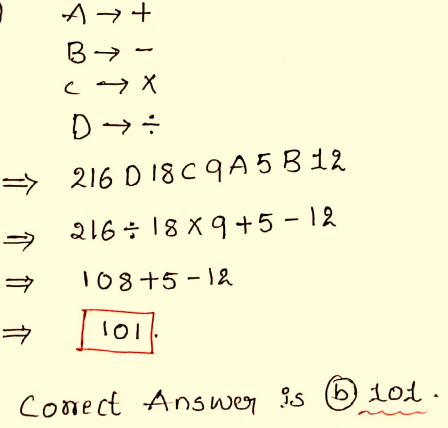 )
A → +
B → -
C → ×
D → ÷
⇒ 216 D 18 C 9 A 5 B 12
⇒ 216 ÷ 18 × 9 + 5 - 12
⇒ 108 + 5 - 12
⇒ 101.
Correct Answer is (b) 101.